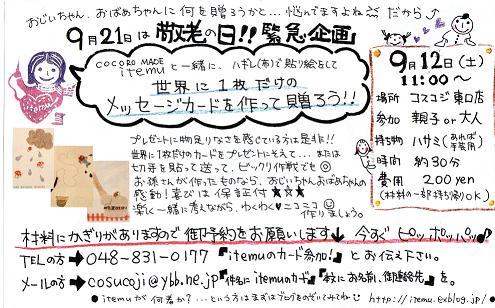 おじいちゃん、おばあちゃんに何を贈ろうかと…悩んでますよね だから
9月21日は敬老の日!!緊急企画
COCORO MADE
itemuと一緒に、ハギレ(布)で貼り絵をして
世界に1枚だけの
メッセージカードを作って贈ろう!!
itemu
9月12日(土)
11:00〜
場所 コスコジ東口店
参加 親子or大人
持ち物 ハサミ(あれば手芸用)
時間 約30分
費用 200yen
(材料の一部持ち帰りOK)
プレゼントに物足りなさを感じている方は是非!!
世界に1枚だけのカードをプレゼントにそえて…または
切手を貼って送って、ビックリ作戦でも◎
お孫さんが作ったものなら、おじいちゃんおばあちゃんの
感動!喜びは保証正付★★★
楽しく一緒に考えながら、わくわく♥ニコニコ
作りましょう。
材料にかぎりがありますので御予約をお願いします↓今すぐピッポッパッ♪
TELの方→048-831-0177『itemuのカード参加!』とお伝え下さい。
メールの方→cosucoji@ybb.ne.jp『件名にitemuのカード』『教にお名前、御連絡先』を。
●itemuが何者か?…という方はまずはブログをのぞいてみてね http://itemu.exblog.jp/